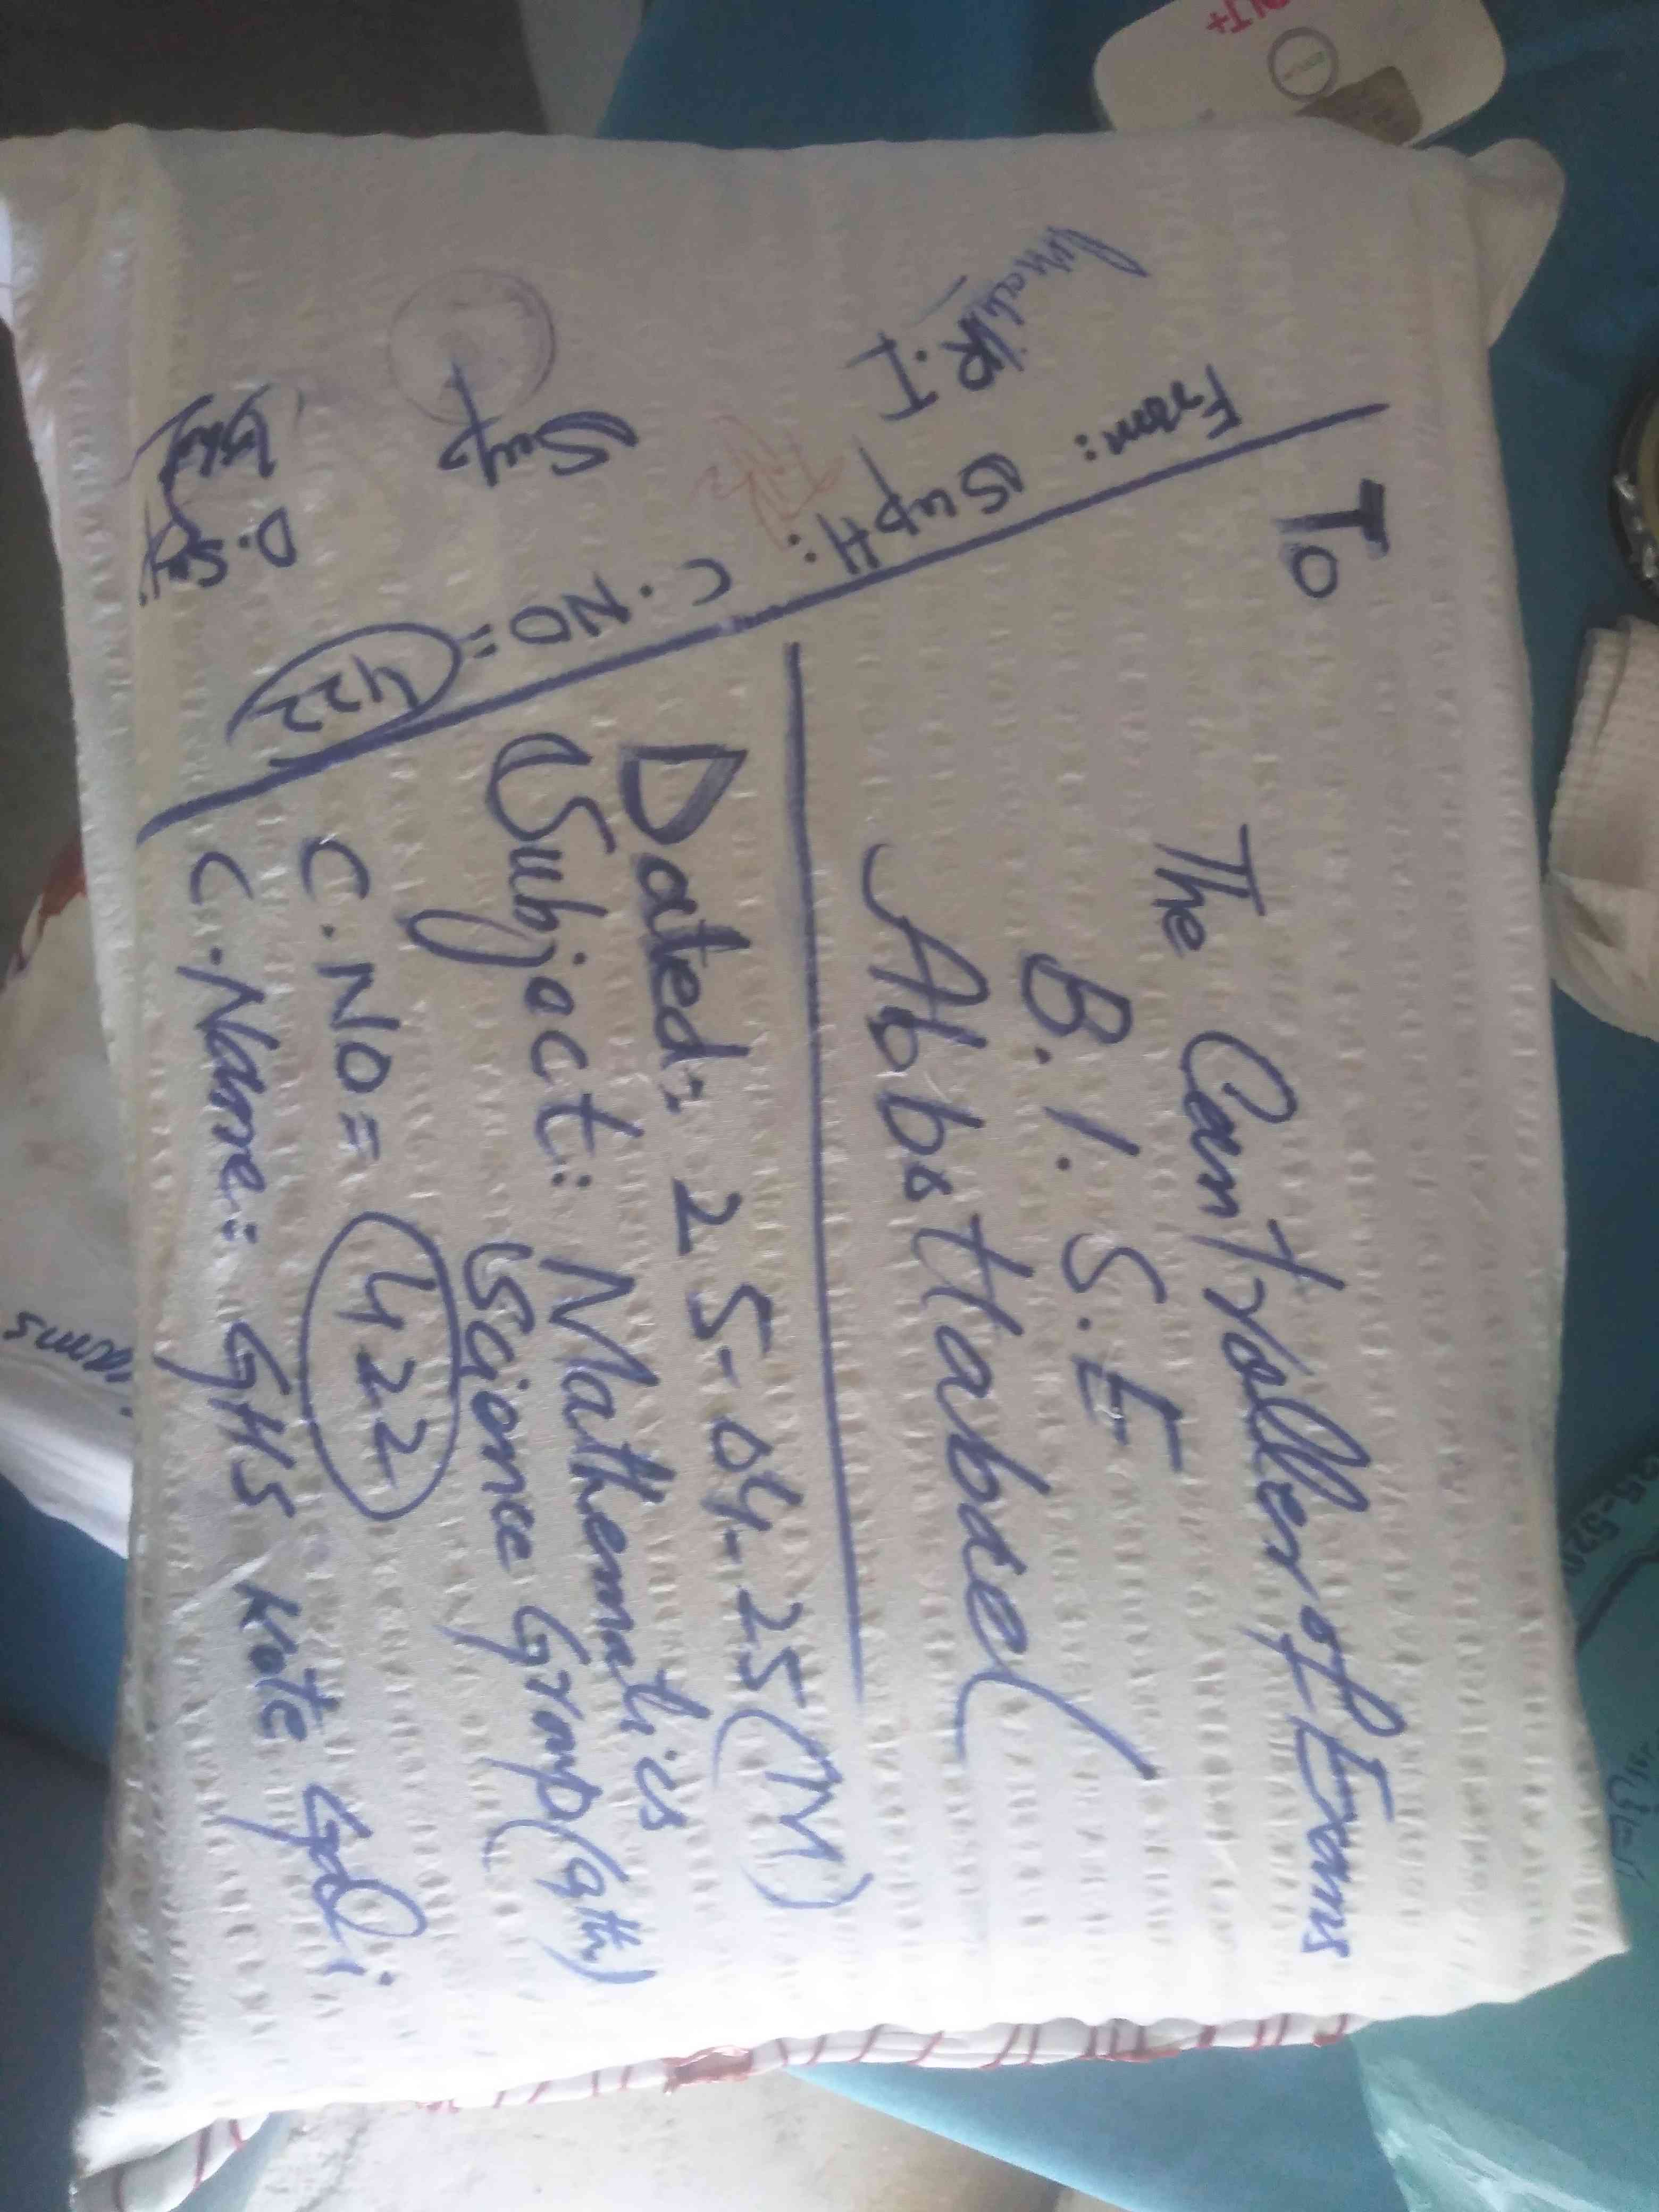 To
The Controller of Exams
B.I.S.E
Abbottabad
Dated: 25-04-25 (M)
Subject: Mathematics
Science Group (9th)
C.No = 422
C.Name: GHS Kote
From: Supt:
C.No= 422
R.I
Supt
D.Supt